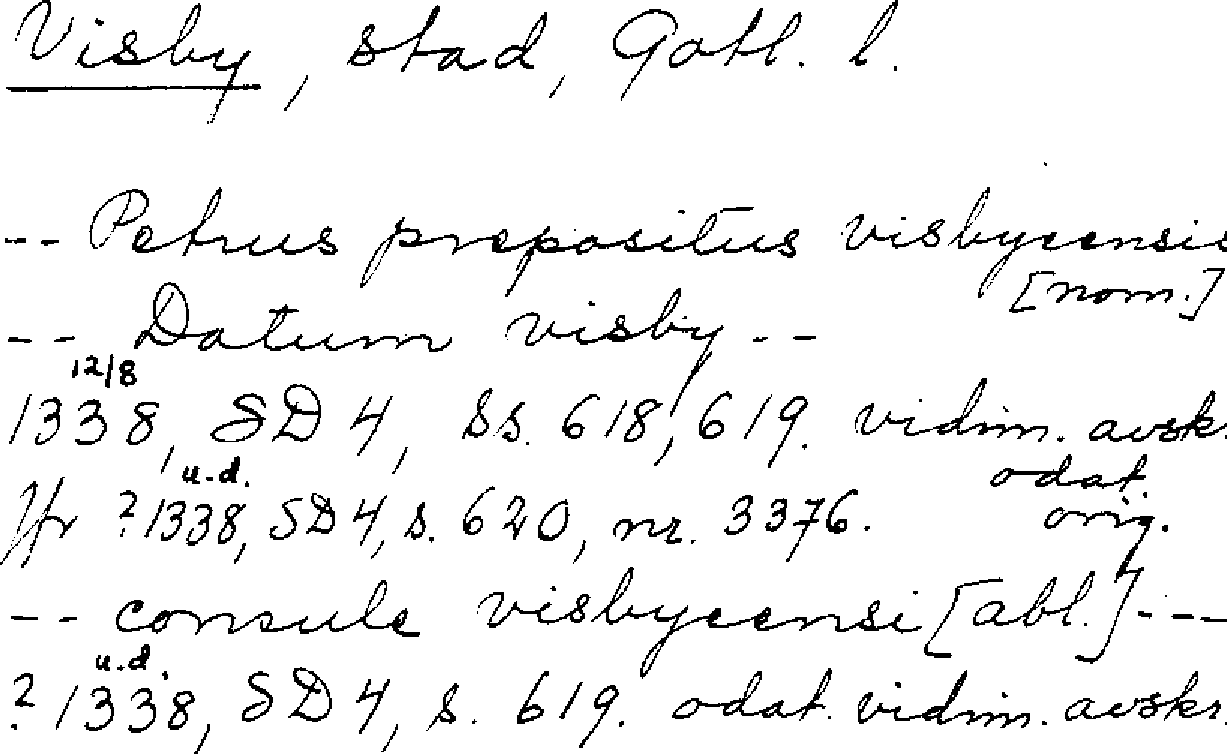 Visby, stad, Gotl. l.
-- Petrus prepositus visbycensis
[nom.]
-- Datum visby --
12/8
1338, SD 4, ss. 618, 619. vidim. avskr.
odat.
u.d.
Jfr ?1338, SD 4, s. 620, nr. 3376. orig.
-- consule visbycensi [abl.] ---
u.d.
? 1338, SD 4, s. 619. odat. vidim. avskr.